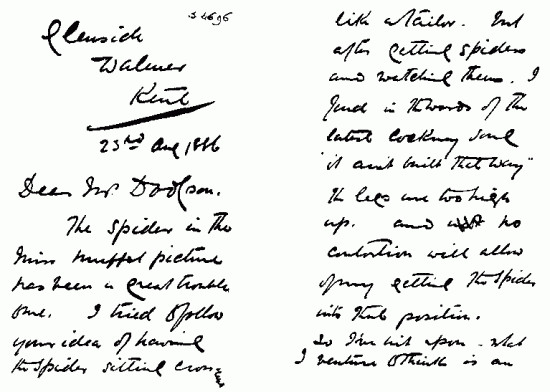 Glenside
Walmer
Kent
23rd Aug 1886
Dear Mr. Dodgson.
The spider in the
Miss Muffet picture
has been a great trouble
to me. I tried to follow
your idea of having
the spider sitting cross
like a tailor. But
after getting spiders
and watching them. I
find in the words of the
latest Cockney song
"it aint built that way"
the legs are too high
up. and no
contortion will allow
of my getting the spider
into that position.
So I've hit upon what
I venture to think is an